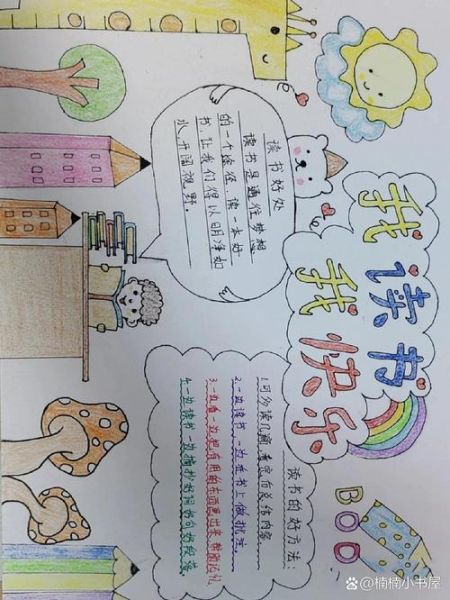 我读书
我快乐
读书好处
读书是通往梦想
的一个途径，读一本好
书，让我们得以明净如
水，开阔视野。
读书的好方法：
1.可多读几遍，看完作总结内容
2.一边读书，一边在书上做批注。
3.一边看一边把有用的东西画出来，帮助记忆
4.一边读书一边摘抄好词好句好段落
BOO
@楠楠小书屋